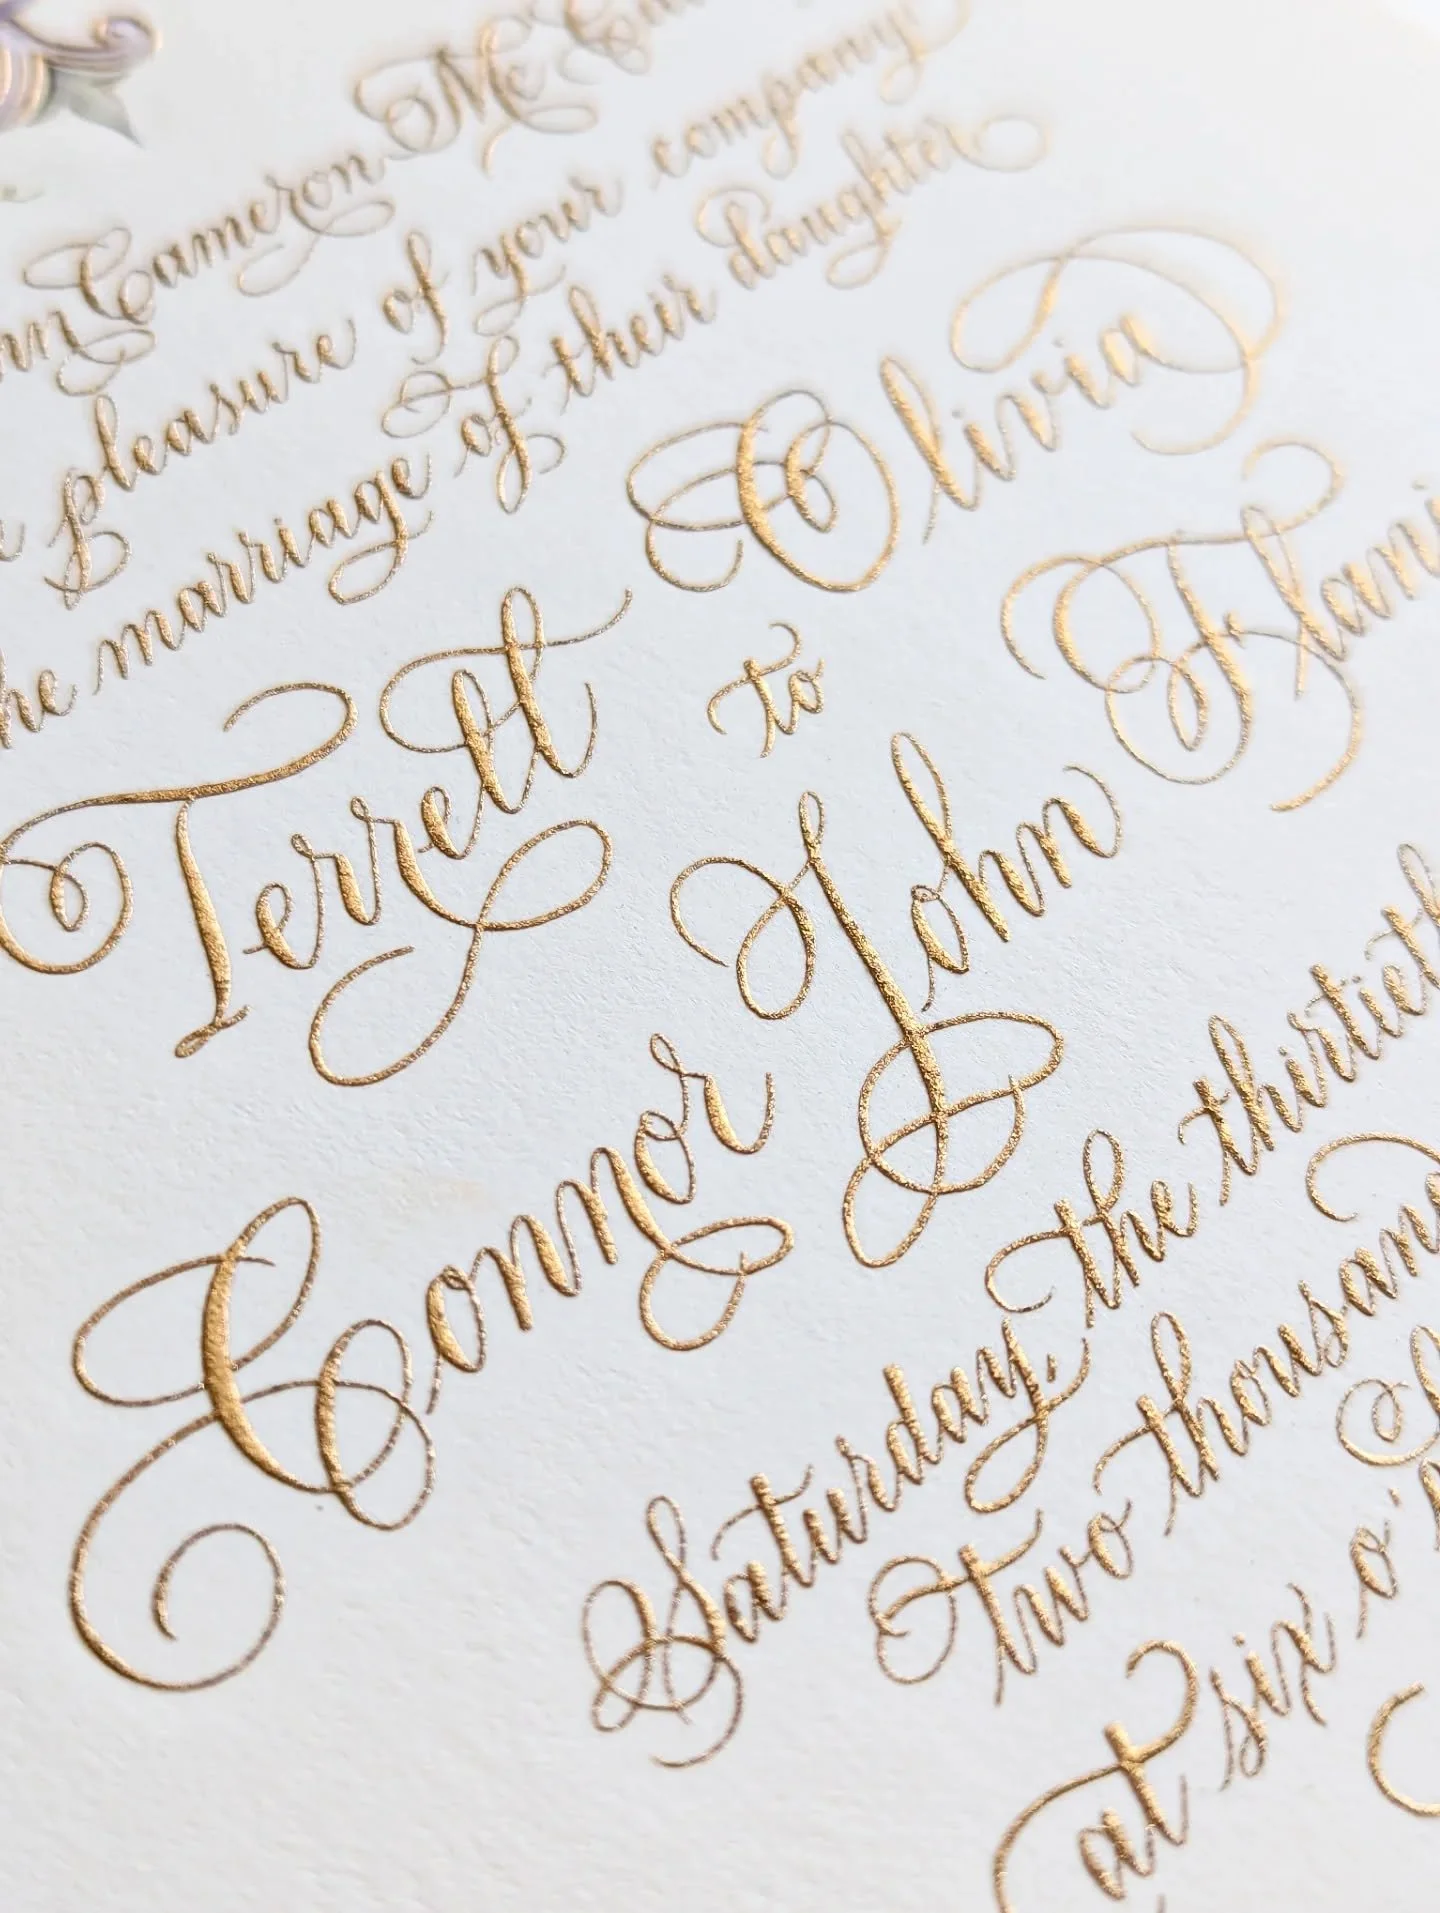 Cameron Mc
pleasure of your company
he marriage of their daughter
Terrett Olivia
to
Connor John Flani
Saturday, the thirtieth
two thousan
at six o'